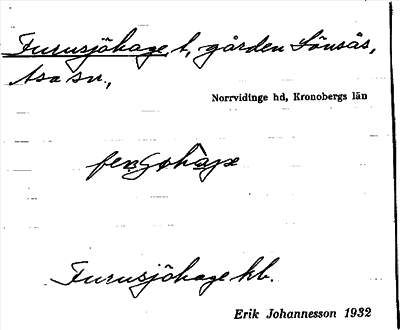 Furusjöhage t, gården Lönsås,
Asa sn.,
Norrvidinge hd, Kronobergs län
Furusjöhage hb.
Erik Johannesson 1932